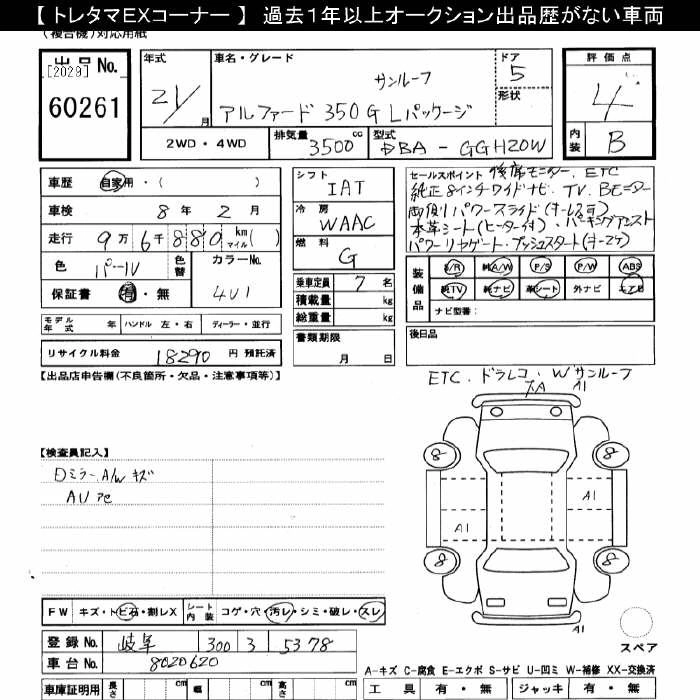 【 トレタマEXコーナー 】 過去1年以上オークション出品歴がない車両
(複合機)対応用紙
出品 No.
[2029]
60261
年式
21/月
車名・グレード
サンルーフ
アルファード 350G Lパッケージ
ドア
5
形状
評価点
4
内装 B
2WD・4WD
排気量 3500 cc
型式 DBA-GGH20W
車歴 自家用・( )
車検 8年 2月
走行 9万 6千 880 km マイル( )
色 パール 色替
カラーNo. 4U1
保証書 有・無
シフト
IAT
冷房
WAAC
燃料
G
乗車定員 7 名
積載量 kg
総重量 kg
書類期限
月 日
セールスポイント 後席モニター、ETC
純正8インチワイドナビ、TV、BEニター
両側パワースライド(キーレス可)
本革シート(ヒーター付)、パーキングアシスト
パワーリヤゲート・プッシュスタート(キー2ケ)
装備品
S/R 純A/W P/S P/W ABS
純TV 純ナビ 革シート 外ナビ エアB
ナビ型番:
モデル年式 年 ハンドル 左・右 ディーラー・並行
リサイクル料金 18290 円 預託済
後日品
【出品店申告欄(不良箇所・欠品・注意事項等)】
ETC、ドラレコ、Wサンルーフ
A1
【検査員記入】
Dミラー、A/W キズ
8
8
A1
A1
8
8
A1
FW キズ・トビ石・割レX
シート内装 コゲ・穴・汚レ・シミ・破レ・スレ
登録 No. 岐阜 300 3 5378
車台 No. 8020620
スペア
A-キズ C-腐食 E-エクボ S-サビ U-凹ミ W-補修 XX-交換済
車庫証明用 長さ cm 幅 cm 高さ cm
工具 有・無 ジャッキ 有・無